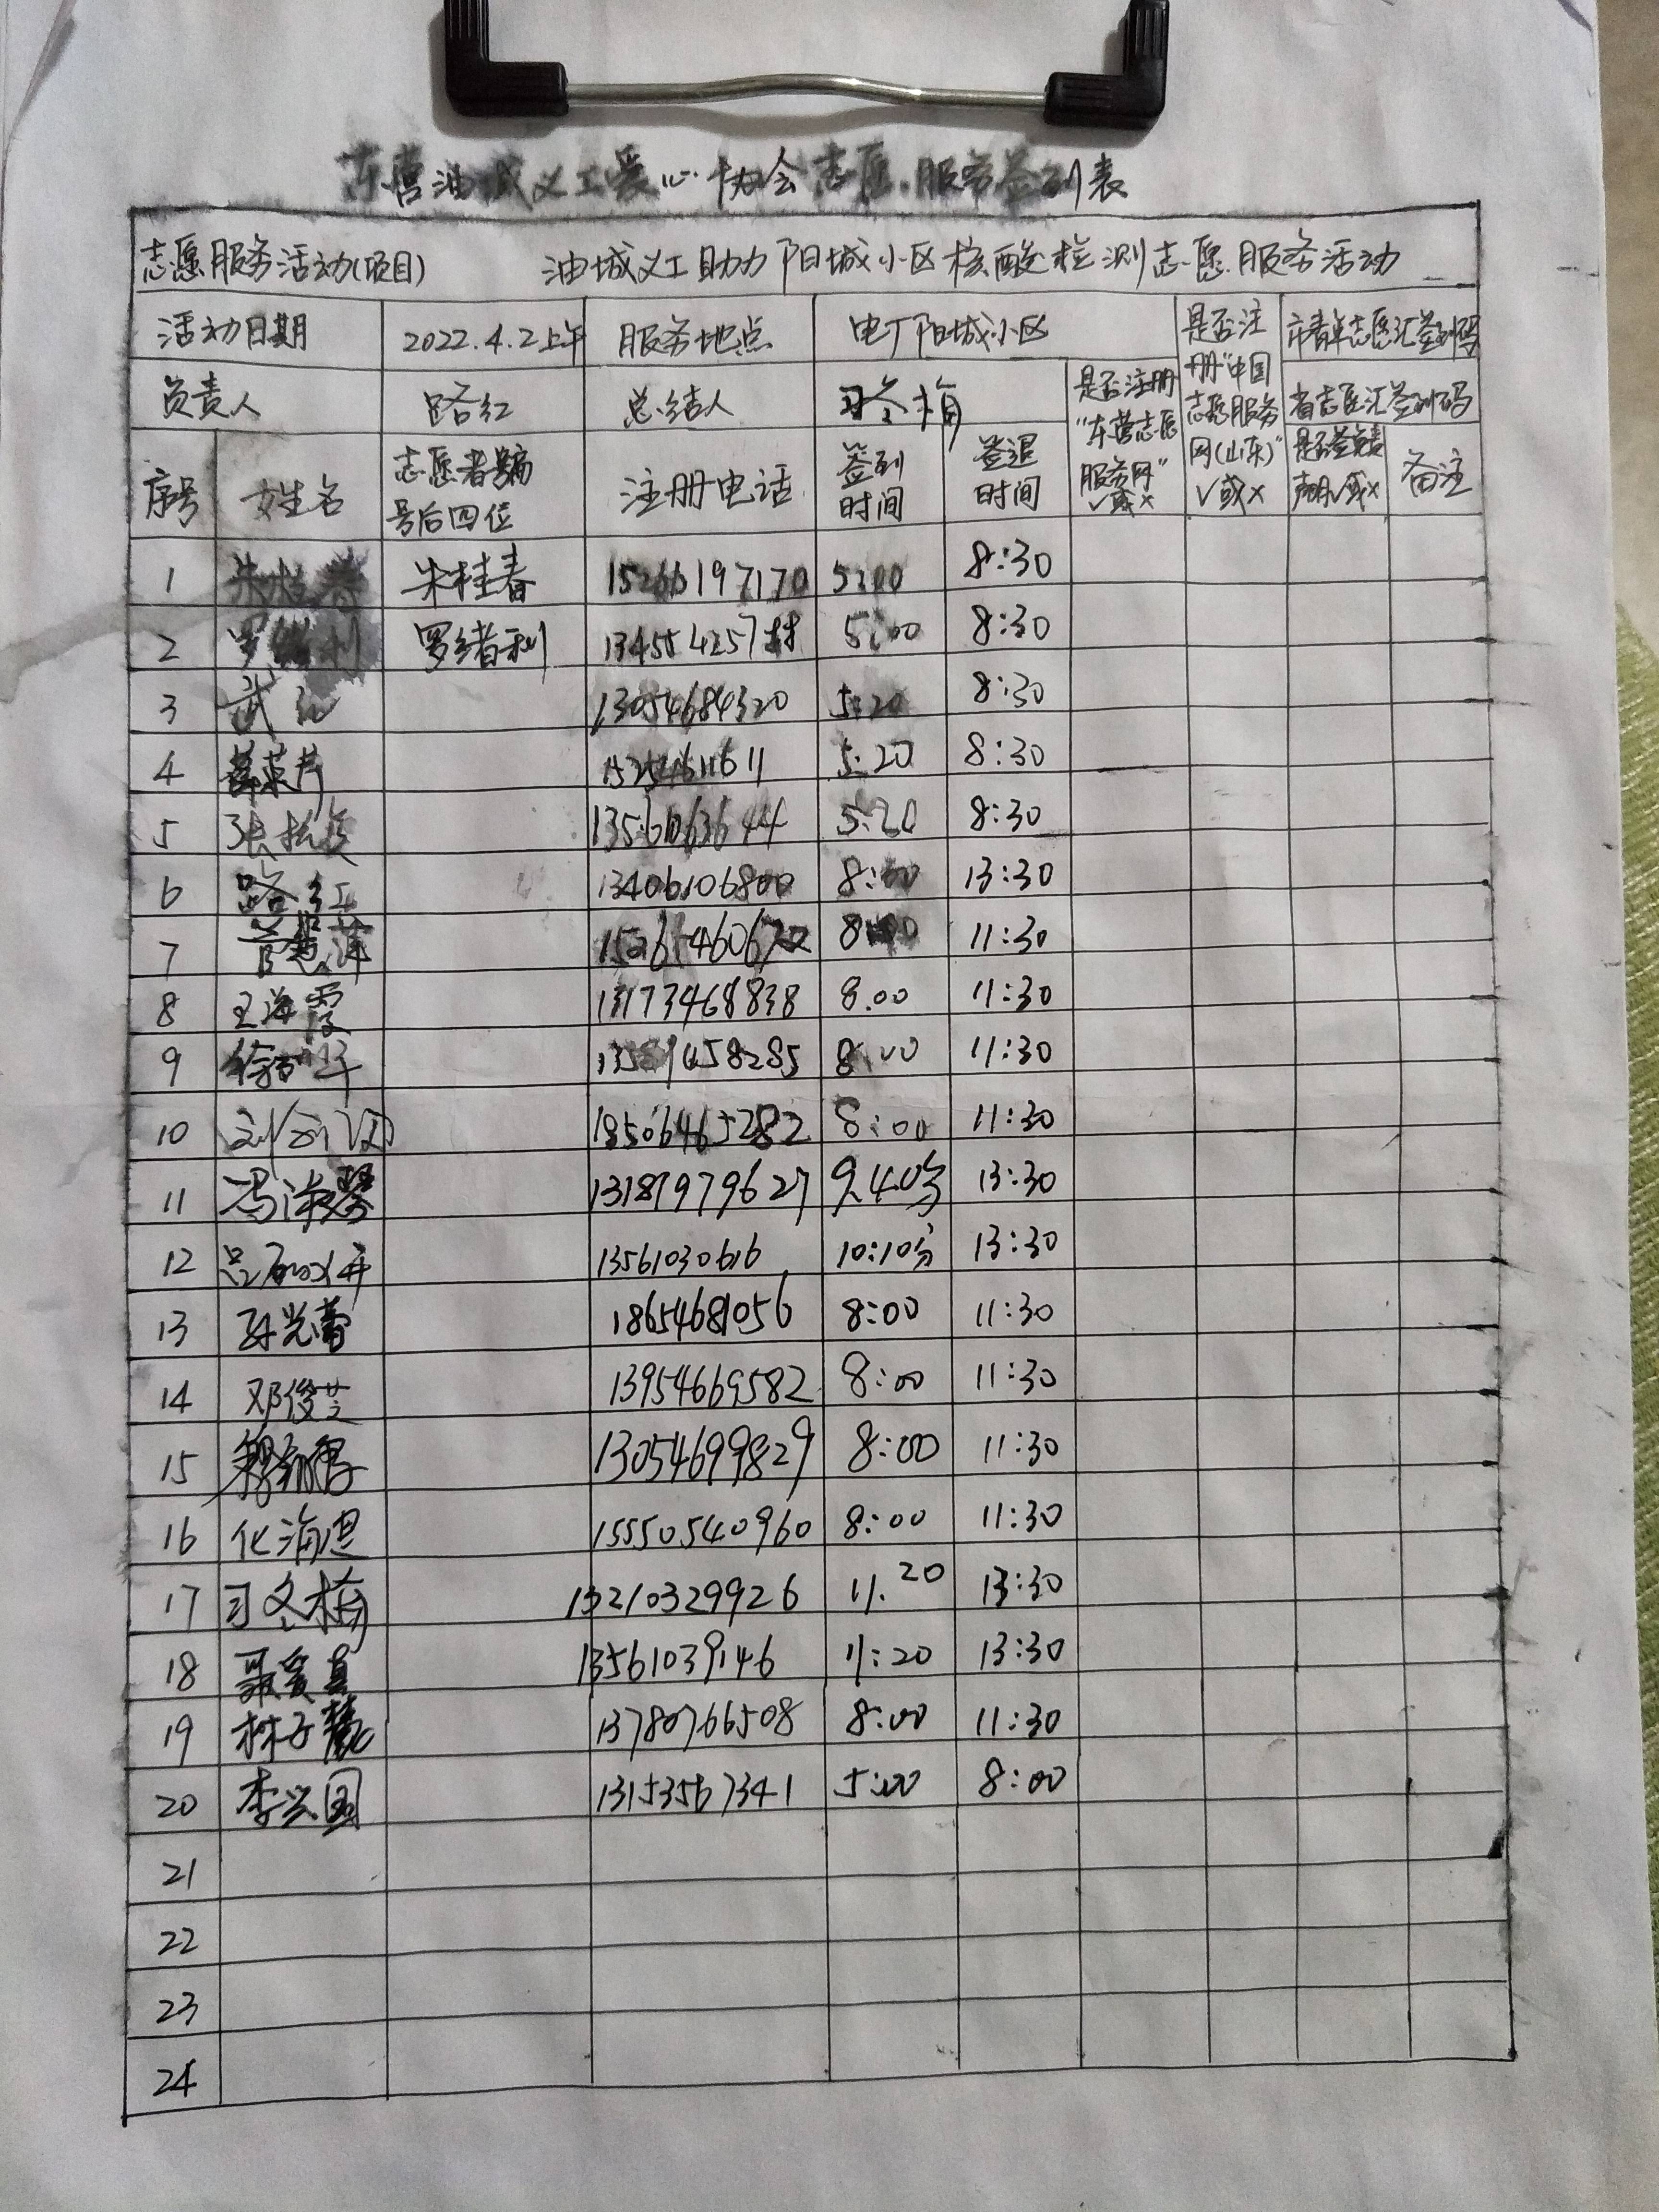 东营油城义工爱心协会志愿服务签到表
志愿服务活动(项目) 油城义工助力阳城小区核酸检测志愿服务活动
活动日期 2022.4.2上午 服务地点 电厂阳城小区
负责人 路红 总结人 习冬梅
是否注册"东营志愿服务网"√或×
是否注册"中国志愿服务网(山东)"√或×
省志愿汇签到码
序号 姓名 志愿者编号后四位 注册电话 签到时间 签退时间 备注
1 朱桂春 朱桂春 15266197170 5:00 8:30
2 罗绪利 罗绪利 5:00 8:30
3 武红 13054684320 5:20 8:30
4 5:20 8:30
5 5:20 8:30
6 路红 13406106800 8:00 13:30
7 8:00 11:30
8 王海霞 13173468838 8.00 11:30
9 8:00 11:30
10 18506465282 8:00 11:30
11 冯淑琴 13187979627 9.40分 13:30
12 13561030616 10:10分 13:30
13 孙光蕾 18654681056 8:00 11:30
14 邓俊芝 13954669582 8:00 11:30
15 13054699829 8:00 11:30
16 化海思 15550540960 8:00 11:30
17 习冬梅 13210329926 11.20 13:30
18 聂爱真 13561039146 11:20 13:30
19 林子 13780766508 8:00 11:30
20 李兴国 13153567341 5:00 8:00
21
22
23
24